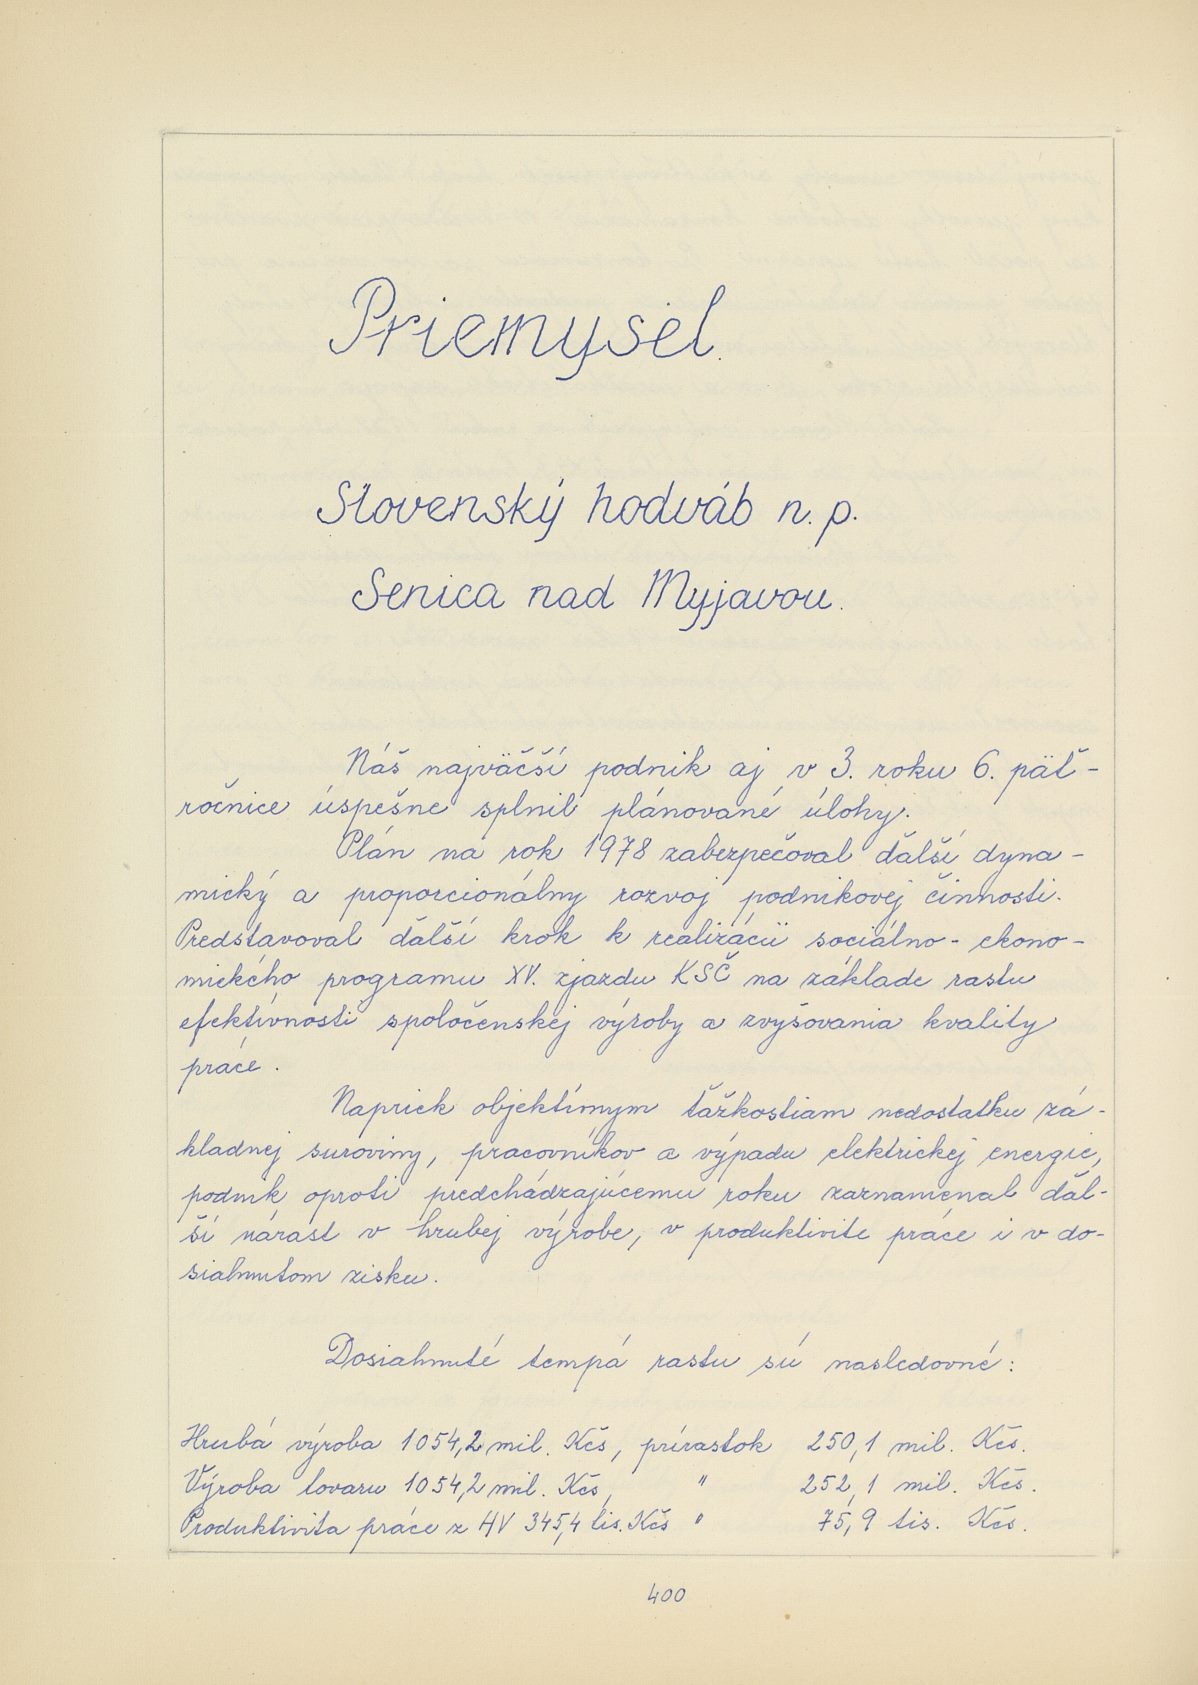 Priemysel.
Slovenský hodváb n. p.
Senica nad Myjavou.
Náš najväčší podnik aj v 3. roku 6. päť-
ročnice úspešne splnil plánované úlohy.
Plán na rok 1978 zabezpečoval ďalší dyna-
mický a proporcionálny rozvoj podnikovej činnosti.
Predstavoval ďalší krok k realizácii sociálno-ekono-
mického programu XV. zjazdu KSČ na základe rastu
efektívnosti spoločenskej výroby a zvyšovania kvality
práce.
Napriek objektímym ťažkostiam nedostatku zá-
kladnej suroviny, pracovníkov a výpadu elektrickej energie,
podnik oproti predchádzajúcemu roku zaznamenal ďal-
ší nárast v hrubej výrobe, v produktivite práce i v do-
siahnutom zisku.
Dosiahnuté tempá rastu sú nasledovné:
Hrubá výroba 1054,2 mil. Kčs, prírastok 250,1 mil. Kčs.
Výroba tovaru 1054,2 mil. Kčs, " 252,1 mil. Kčs.
Produktivita práce z HV 345,4 tis. Kčs " 75,9 tis. Kčs.
400